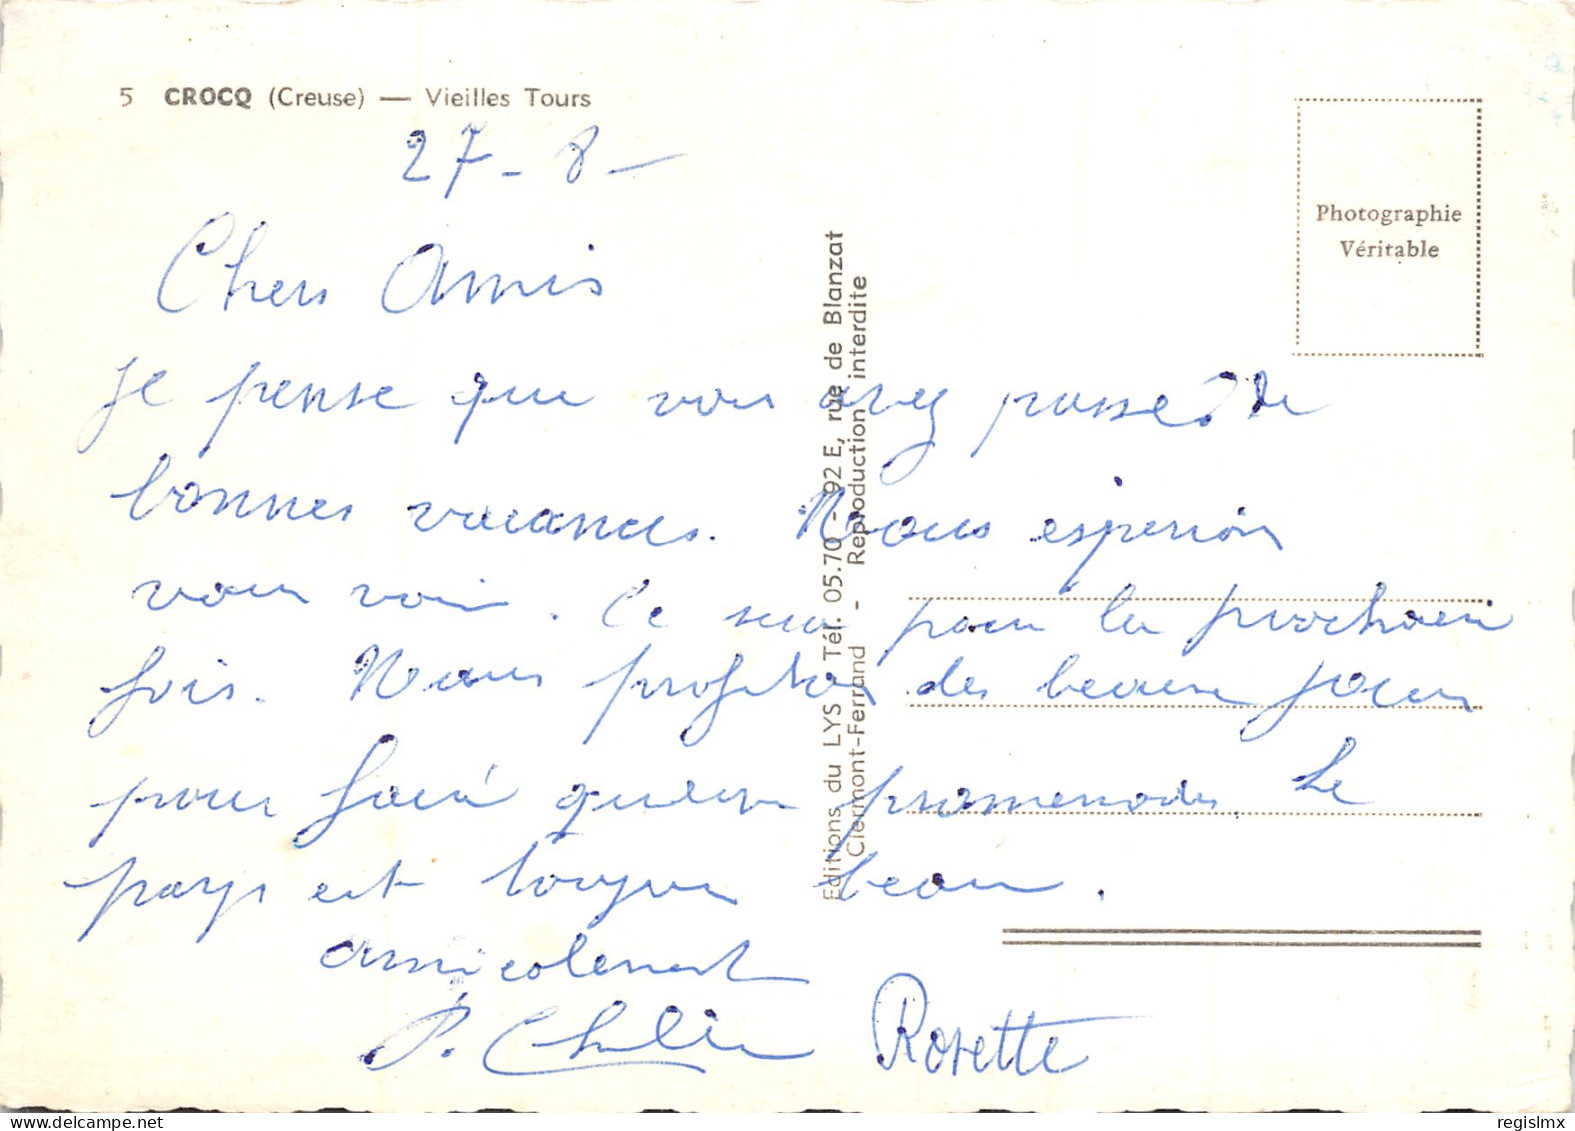 5 CROCQ (Creuse) — Vieilles Tours
27 - 8 -
Photographie
Véritable
Chers Amis
je pense que vous avez passé de
bonnes vacances. Nous esperions
vous voir. Ce sera pour la prochaine
fois. Nous profitons des beaux jours
pour faire quelques promenades. Le
pays est toujours beau.
amicalement
P. Rosette
Editions du LYS Tél. 05.70 - 92 E, rue de Blanzat
Clermont-Ferrand - Reproduction interdite
delcampe.net
regislmx